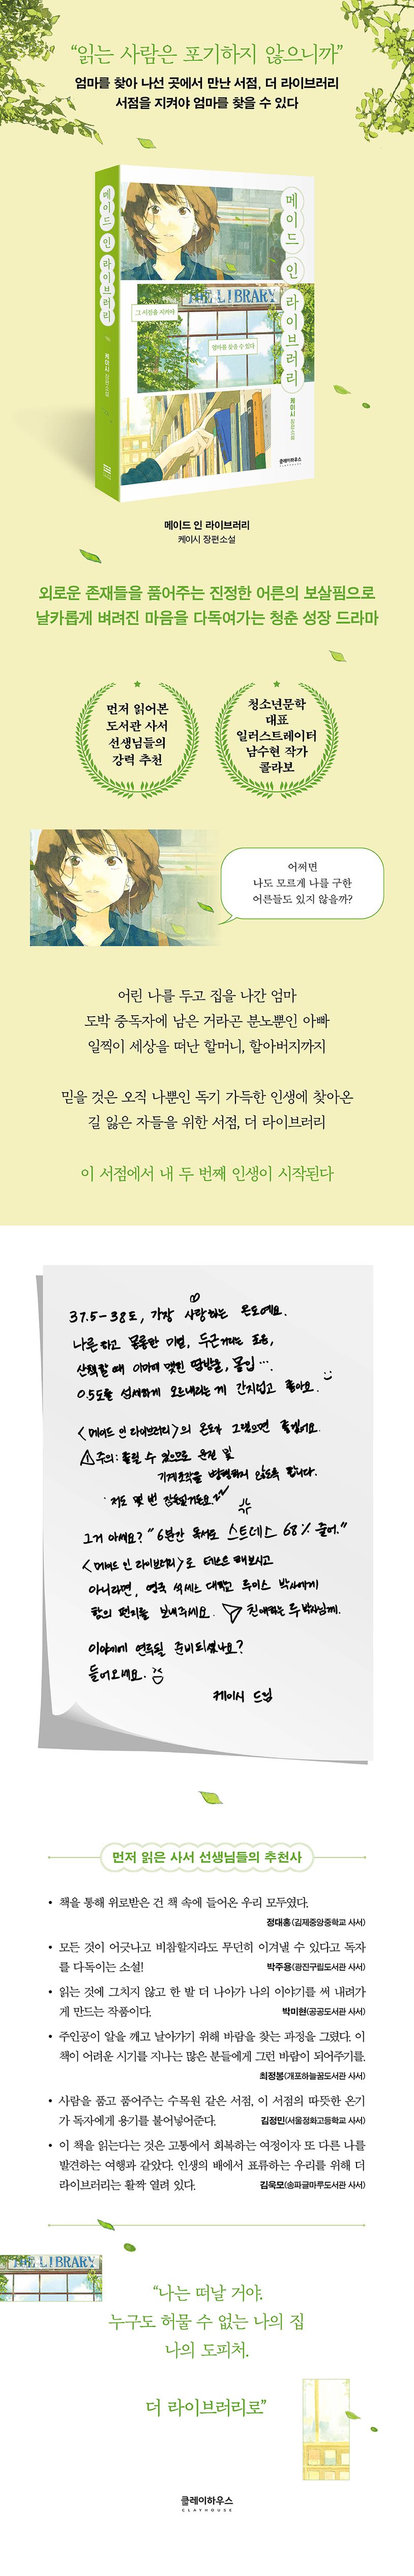 “읽는 사람은 포기하지 않으니까”
엄마를 찾아 나선 곳에서 만난 서점, 더 라이브러리
서점을 지켜야 엄마를 찾을 수 있다
메이드 인 라이브러리
케이시 장편소설
메이드 인 라이브러리
THE LIBRARY
그 서점을 지켜야
엄마를 찾을 수 있다
케이시 장편소설
클레이하우스
CLAYHOUSE
메이드 인 라이브러리
케이시 장편소설
외로운 존재들을 품어주는 진정한 어른의 보살핌으로
날카롭게 벼려진 마음을 다독여가는 청춘 성장 드라마
먼저 읽어본
도서관 사서
선생님들의
강력 추천
청소년문학
대표
일러스트레이터
남수현 작가
콜라보
어쩌면
나도 모르게 나를 구한
어른들도 있지 않을까?
어린 나를 두고 집을 나간 엄마
도박 중독자에 남은 거라곤 분노뿐인 아빠
일찍이 세상을 떠난 할머니, 할아버지까지
믿을 것은 오직 나뿐인 독기 가득한 인생에 찾아온
길 잃은 자들을 위한 서점, 더 라이브러리
이 서점에서 내 두 번째 인생이 시작된다
37.5-38도, 가장 사랑하는 온도예요.
나른하고 몽롱한 미열, 두근거리는 호흡,
산책할 때 이마에 맺힌 땀방울, 몰입….
0.5도를 섬세하게 오르내리는 게 간지럽고 좋아요.
<메이드 인 라이브러리>의 온도가 그랬으면 좋겠어요.
주의: 졸릴 수 있으므로 운전 및
기계조작을 병행하지 않도록 합니다.
저도 몇 번 잠들었거든요.
그거 아세요? “6분간 독서로 스트레스 68% 줄어.”
<메이드 인 라이브러리>로 테스트 해보시고
아니라면, 영국 서섹스 대학교 루이스 박사에게
항의 편지를 보내주세요. 친애하는 루 박사님께.
이야기에 연루될 준비 되셨나요?
들어오세요.
케이시 드림
먼저 읽은 사서 선생님들의 추천사
• 책을 통해 위로받은 건 책 속에 들어온 우리 모두였다.
정대홍(김제중앙중학교 사서)
• 모든 것이 어긋나고 비참할지라도 무던히 이겨낼 수 있다고 독자
를 다독이는 소설! 박주용(광진구립도서관 사서)
• 읽는 것에 그치지 않고 한 발 더 나아가 나의 이야기를 써 내려가
게 만드는 작품이다. 박미현(공공도서관 사서)
• 주인공이 알을 깨고 날아가기 위해 바람을 찾는 과정을 그렸다. 이
책이 어려운 시기를 지나는 많은 분들에게 그런 바람이 되어주기를.
최정봉(개포하늘꿈도서관 사서)
• 사람을 품고 품어주는 수목원 같은 서점, 이 서점의 따뜻한 온기
가 독자에게 용기를 불어넣어준다. 김정민(서울정화고등학교 사서)
• 이 책을 읽는다는 것은 고통에서 회복하는 여정이자 또 다른 나를
발견하는 여행과 같았다. 인생의 배에서 표류하는 우리를 위해 더
라이브러리는 활짝 열려 있다. 김욱모(송파글마루도서관 사서)
THE LIBRARY
“나는 떠날 거야.
누구도 허물 수 없는 나의 집
나의 도피처.
더 라이브러리로”
클레이하우스
CLAYHOUSE